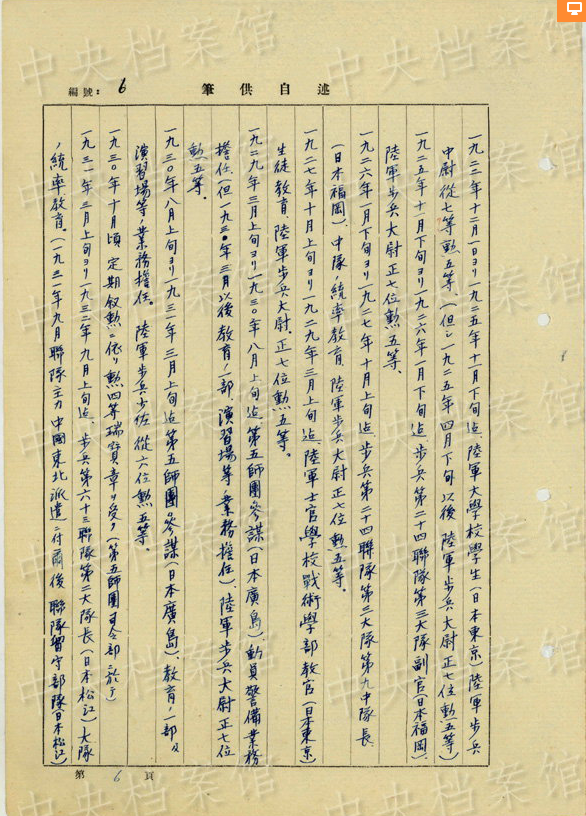 編號: 6
筆供自述
一九二三年十二月一日ヨリ一九二五年十一月下旬迠、陸軍大學校學生(日本東京)陸軍步兵
中尉從七等勲五等、(但シ一九二五年四月下旬以後 陸軍步兵大尉正七位勲五等)
一九二五年十一月下旬ヨリ一九二六年一月下旬迠、步兵第二十四聯隊第三大隊副官(日本福岡)、
陸軍步兵大尉正七位勲五等。
一九二六年一月下旬ヨリ一九二七年十月上旬迠、步兵第二十四聯隊第三大隊第九中隊長
(日本福岡)、中隊ノ統率教育、陸軍步兵大尉正七位勲五等。
一九二七年十月上旬ヨリ一九二九年三月上旬迠、陸軍士官學校戰術學部教官(日本東京)
生徒教育、陸軍步兵大尉、正七位勲五等。
一九二九年三月上旬ヨリ一九三〇年八月上旬迠、第五師團參謀(日本廣島)、動員警備業務
擔任、(但一九三〇年三月以後教育ノ一部、演習場等業務擔任)、陸軍步兵大尉正七位
勲五等。
一九三〇年八月上旬ヨリ一九三一年三月上旬迠第五師團參謀(日本廣島)、教育ノ一部及
演習場等ノ業務擔任。陸軍步兵少佐從六位勲五等。
一九三〇年十月頃 定期叙勲ニ依リ勲四等瑞寶章ヲ受ク(第五師團司令部ニ於テ)
一九三一年三月上旬ヨリ一九三二年九月上旬迠、步兵第六十三聯隊第二大隊長(日本松江)、大隊
ノ統率教育。(一九三一年九月聯隊主力中國東北派遣ニ付爾後聯隊留守部隊(日本松江)
第 6 頁
中央档案馆